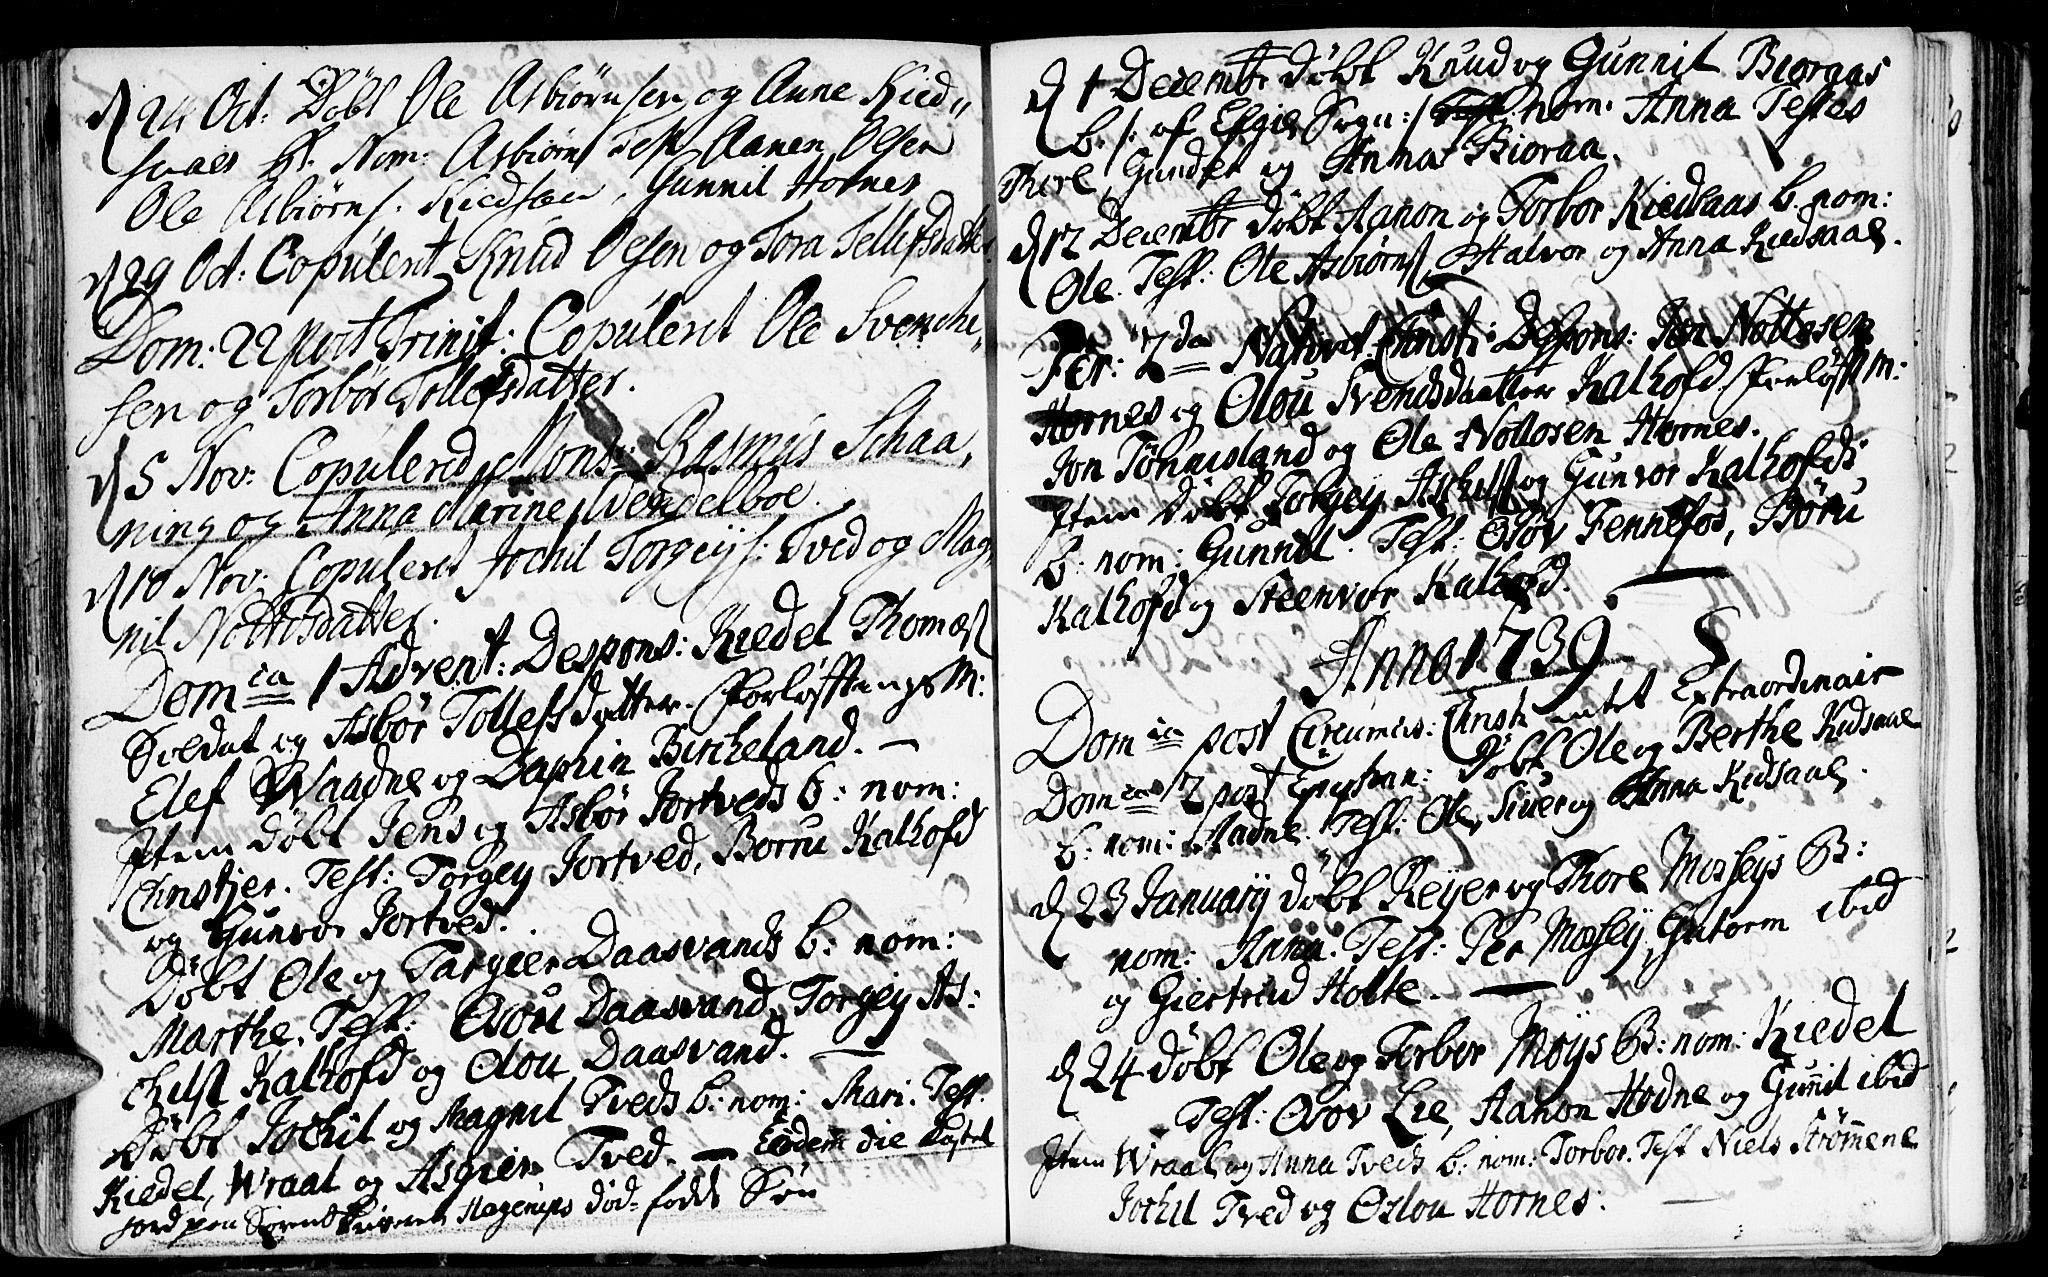 d 24 Oct: Döbt Ole Asbiørnsen og Anne Kied„
saaes b: Nom: Asbiørn Test Aanen Olsen
Ole Asbiørns. Kiedsaa, Gunnil Hornes
d 29 Oct: Copulert Knud Olsen og Tora Tellefsdatter.
Dom: 22 post Trinit: Copuleret Ole Svenche„
sen og Torbor Tollefsdatter.
d 5 Nov: Copulered Mons: Rasmus Schaa,
ning og Anna Marine Wendelboe.
d 10 Nov: Copuleret Jochil Torgeijs: Tved og Mag„
nil Nottisdatter.
Dom ca 1 Advent: Despons: Kiedel Thomæs
Soldat og Asbør Tollefsdatter. Forløftings M:
Elef Waadne og Daphin Bircheland. —
Item döbt Jens og Asbør Jortveds b: nom:
Christjer. Test: Torgey Jortved, Borru Kalhofd
og Gunvor Jortved.
Döbt Ole og Targier Daasvands b: nom:
Marthe. Test: Osou Daasvand, Torgey As:
chilss Kalhofd og Olou Daasvand. —
Döbt Jochil og Magnil Tveds b: nom: Mari. Test.
Kiedel, Wraal og Asgier Tved. — Eodem die Kastet
jord paa Sorenskriver Hagerups död-fødde Sön
d 1 Decembr döbt Knud og Gunnil Bioraas
b. /: af Efgie Sogn:/ nom: Anna Testes
Thore, Gunder og Anna Bioraa.
d 12 Decembr döbt Aanon og Torbor Kiedsaas b. nom:
Ole. Test: Ole Asbiørns, Halvor og Anna Kiedsaae.
Fer: 2da Nativit: Christi: Despons: Jon Nottosen
Hornes og Olou Svendsdaatter Kalhofd, Forløft M:
Jon Tönnesland og Ole Nottosen Hornes.
Item döbt Torgeij Aschilss og Gunvor Kalhofds
b: nom: Gunnil. Test: Osöv Fennefos, Böru
Kalhofd og Steenvor Kalhofd.
Anno 1739.
Dom ca post Circumcis: Christi intet Extraordinair
Dom ca 2 post Epiphan: Döbt Ole og Berthe Kidsaae
b: nom: Aadne. Test: Ole, Siver og Anna Kidsaae.
d 23 Januarij döbt Reyer og Thore Mosseys B:
nom: Anna. Test: Per Mossey, Gutorm ibid
og Giertrud Holte. —
d 24 döbt Ole og Torbor Moijs B: nom: Kiedel
Test: Osov Lie, Aanon Hodne og Gunil ibid
Item Wraal og Anna Tveds b: nom: Torbor. Test Niels Strömene
Jochil Tved og Oslou Hornes. —